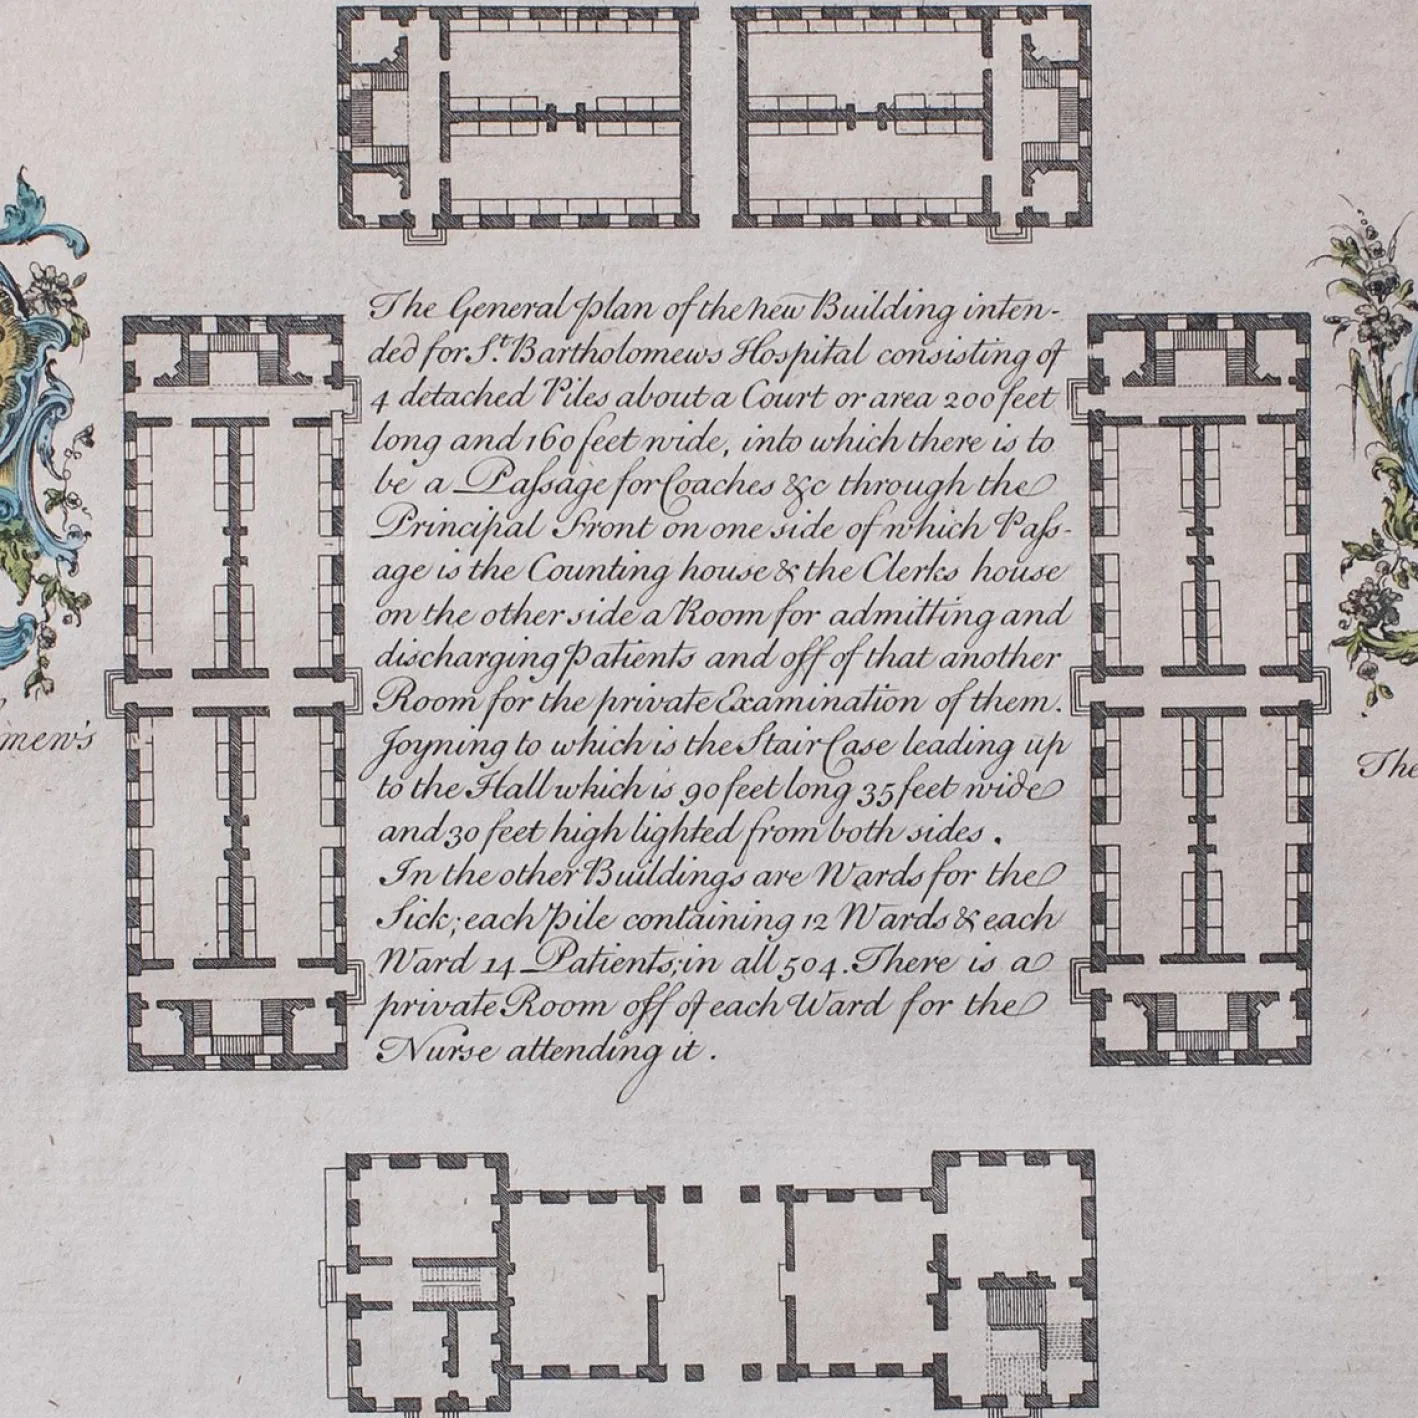 The General plan of the new Building inten-
ded for St. Bartholomews Hospital consisting of
4 detached Piles about a Court or area 200 feet
long and 160 feet wide, into which there is to
be a Paſsage for Coaches &c through the
Principal Front on one side of which Paſs-
age is the Counting house & the Clerks house
on the other side a Room for admitting and
discharging Patients and off of that another
Room for the private Examination of them.
Joyning to which is the Stair Case leading up
to the Hall which is 90 feet long 35 feet wide
and 30 feet high lighted from both sides.
In the other Buildings are Wards for the
Sick; each pile containing 12 Wards & each
Ward 14 Patients; in all 504. There is a
private Room off of each Ward for the
Nurse attending it.
mew's
The